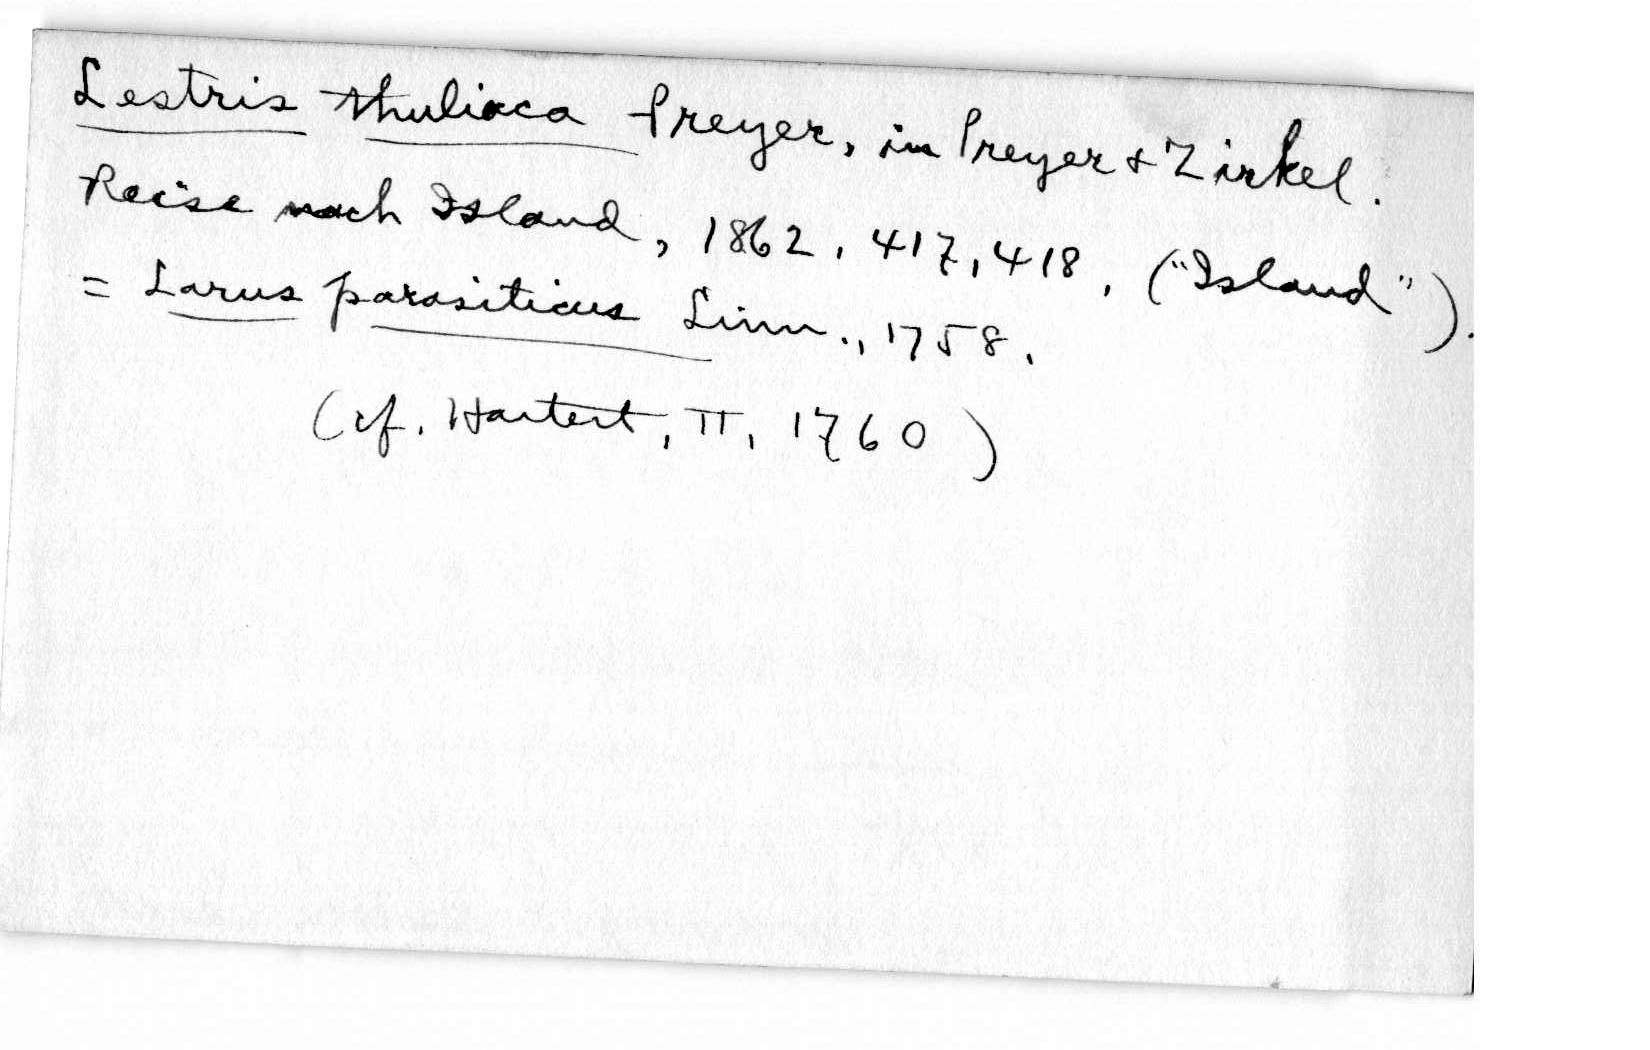 Lestris thuliaca Preyer, in Preyer & Zirkel.
Reise nach Island, 1862, 417, 418, ("Island").
= Larus parasiticus Linn., 1758.
(cf. Hartert, II, 1760)